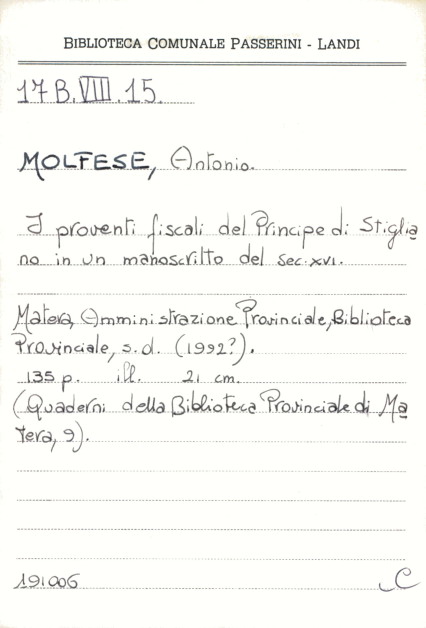 BIBLIOTECA COMUNALE PASSERINI - LANDI
17 B.VIII.15.
MOLFESE, Antonio.
I proventi fiscali del Principe di Stiglia
no in un manoscritto del sec.XVI.
Matera, Amministrazione Provinciale, Biblioteca
Provinciale, s.d. (1992?).
135 p. ill. 21 cm.
(Quaderni della Biblioteca Provinciale di Ma
tera, 9).
191006 C